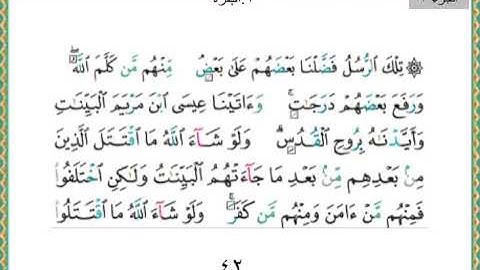 ۞ تِلۡكَ ٱلرُّسُلُ فَضَّلۡنَا بَعۡضَهُمۡ عَلَىٰ بَعۡضٖۘ مِّنۡهُم مَّن كَلَّمَ ٱللَّهُۖ
وَرَفَعَ بَعۡضَهُمۡ دَرَجَٰتٖۚ وَءَاتَيۡنَا عِيسَى ٱبۡنَ مَرۡيَمَ ٱلۡبَيِّنَٰتِ
وَأَيَّدۡنَٰهُ بِرُوحِ ٱلۡقُدُسِۗ وَلَوۡ شَآءَ ٱللَّهُ مَا ٱقۡتَتَلَ ٱلَّذِينَ
مِنۢ بَعۡدِهِم مِّنۢ بَعۡدِ مَا جَآءَتۡهُمُ ٱلۡبَيِّنَٰتُ وَلَٰكِنِ ٱخۡتَلَفُواْ
فَمِنۡهُم مَّنۡ ءَامَنَ وَمِنۡهُم مَّن كَفَرَۚ وَلَوۡ شَآءَ ٱللَّهُ مَا ٱقۡتَتَلُواْ
٤٢